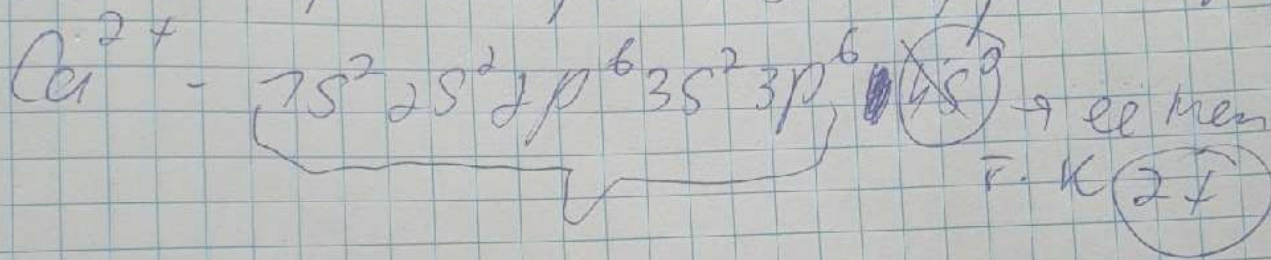 Ca²⁺ - 1s² 2s² 2p⁶ 3s² 3p⁶ 4s⁰ → её нет
т.к 2+